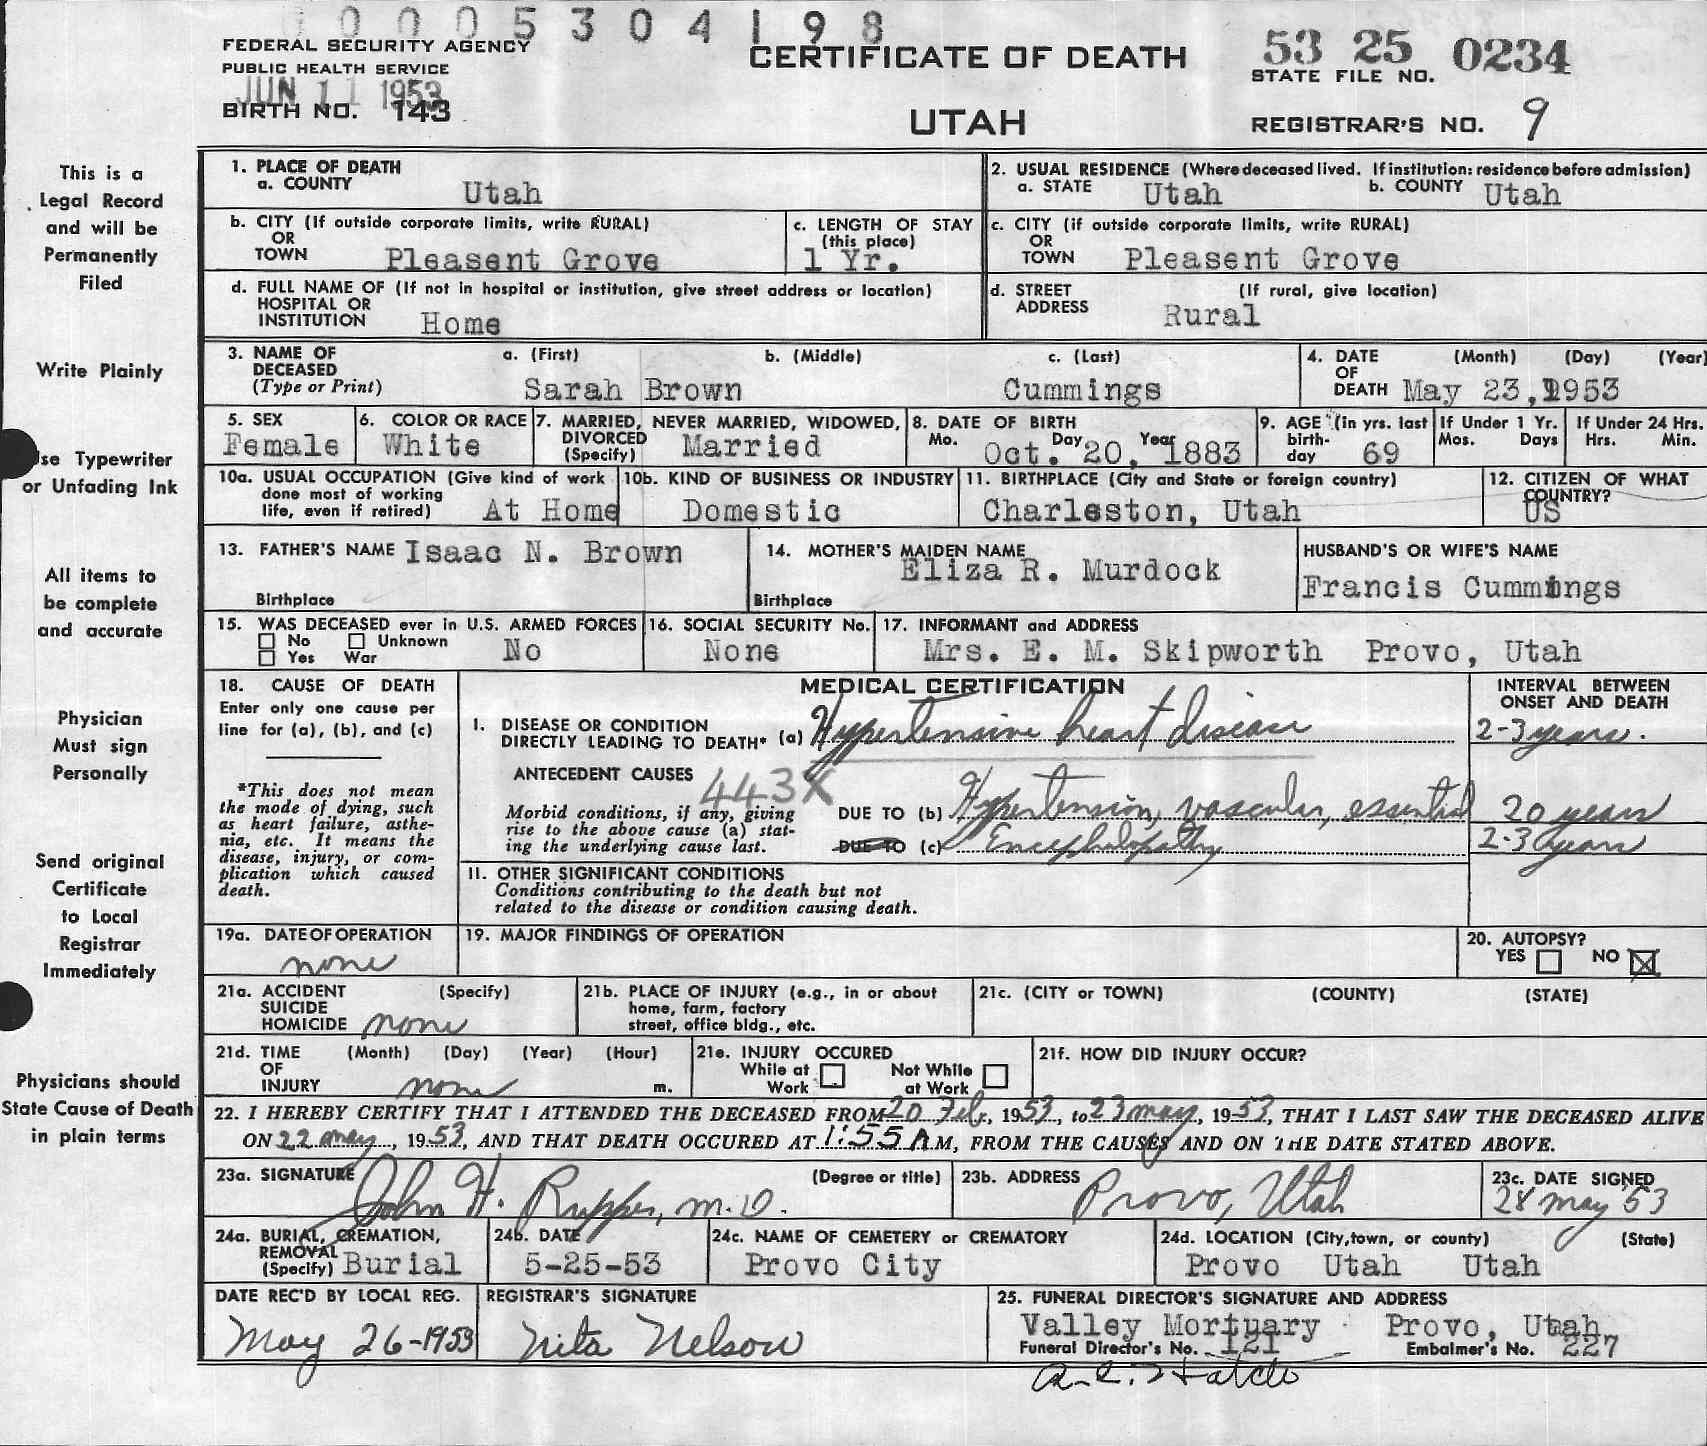 0005304198
FEDERAL SECURITY AGENCY
PUBLIC HEALTH SERVICE
JUN 11 1953
BIRTH NO. 143
CERTIFICATE OF DEATH
UTAH
53 25 0234
STATE FILE NO.
REGISTRAR'S NO. 9
This is a
Legal Record
and will be
Permanently
Filed
Write Plainly
se Typewriter
or Unfading Ink
All items to
be complete
and accurate
Physician
Must sign
Personally
Send original
Certificate
to Local
Registrar
Immediately
Physicians should
State Cause of Death
in plain terms
1. PLACE OF DEATH
a. COUNTY Utah
2. USUAL RESIDENCE (Where deceased lived. If institution: residence before admission)
a. STATE Utah b. COUNTY Utah
b. CITY (If outside corporate limits, write RURAL)
OR
TOWN Pleasent Grove
c. LENGTH OF STAY
(this place)
1 Yr.
c. CITY (if outside corporate limits, write RURAL)
OR
TOWN Pleasent Grove
d. FULL NAME OF (If not in hospital or institution, give street address or location)
HOSPITAL OR
INSTITUTION Home
d. STREET (If rural, give location)
ADDRESS Rural
3. NAME OF a. (First) b. (Middle) c. (Last)
DECEASED
(Type or Print) Sarah Brown Cummings
4. DATE (Month) (Day) (Year)
OF
DEATH May 23, 1953
5. SEX
Female
6. COLOR OR RACE
White
7. MARRIED, NEVER MARRIED, WIDOWED,
DIVORCED
(Specify) Married
8. DATE OF BIRTH
Mo. Day Year
Oct. 20, 1883
9. AGE (in yrs. last
birth-
day 69
If Under 1 Yr.
Mos. Days
If Under 24 Hrs.
Hrs. Min.
10a. USUAL OCCUPATION (Give kind of work
done most of working
life, even if retired) At Home
10b. KIND OF BUSINESS OR INDUSTRY
Domestic
11. BIRTHPLACE (City and State or foreign country)
Charleston, Utah
12. CITIZEN OF WHAT
COUNTRY?
US
13. FATHER'S NAME Isaac N. Brown
Birthplace
14. MOTHER'S MAIDEN NAME
Eliza R. Murdock
Birthplace
HUSBAND'S OR WIFE'S NAME
Francis Cummings
15. WAS DECEASED ever in U.S. ARMED FORCES
No Unknown
Yes War No
16. SOCIAL SECURITY No.
None
17. INFORMANT and ADDRESS
Mrs. E. M. Skipworth Provo, Utah
18. CAUSE OF DEATH
Enter only one cause per
line for (a), (b), and (c)
*This does not mean
the mode of dying, such
as heart failure, asthe-
nia, etc. It means the
disease, injury, or com-
plication which caused
death.
MEDICAL CERTIFICATION
INTERVAL BETWEEN
ONSET AND DEATH
I. DISEASE OR CONDITION
DIRECTLY LEADING TO DEATH* (a) Hypertensive heart disease 2-3 years.
ANTECEDENT CAUSES 443X
Morbid conditions, if any, giving
rise to the above cause (a) stat-
ing the underlying cause last.
DUE TO (b) Hypertension, vascular, essential 20 years
DUE TO (c) Encephalopathy 2-3 years
11. OTHER SIGNIFICANT CONDITIONS
Conditions contributing to the death but not
related to the disease or condition causing death.
19a. DATE OF OPERATION
none
19. MAJOR FINDINGS OF OPERATION
20. AUTOPSY?
YES NO X
21a. ACCIDENT (Specify)
SUICIDE
HOMICIDE none
21b. PLACE OF INJURY (e.g., in or about
home, farm, factory
street, office bldg., etc.
21c. (CITY or TOWN) (COUNTY) (STATE)
21d. TIME (Month) (Day) (Year) (Hour)
OF
INJURY none m.
21e. INJURY OCCURED
While at Not While
Work at Work
21f. HOW DID INJURY OCCUR?
22. I HEREBY CERTIFY THAT I ATTENDED THE DECEASED FROM 20 Feb, 1953, to 23 may, 1953, THAT I LAST SAW THE DECEASED ALIVE
ON 22 may, 1953, AND THAT DEATH OCCURED AT 1:55 A M, FROM THE CAUSES AND ON THE DATE STATED ABOVE.
23a. SIGNATURE (Degree or title)
John H. Rupper, M.D.
23b. ADDRESS
Provo, Utah
23c. DATE SIGNED
28 may '53
24a. BURIAL, CREMATION,
REMOVAL
(Specify) Burial
24b. DATE
5-25-53
24c. NAME OF CEMETERY or CREMATORY
Provo City
24d. LOCATION (City, town, or county) (State)
Provo Utah Utah
DATE REC'D BY LOCAL REG.
May 26-1953
REGISTRAR'S SIGNATURE
Nita Nelson
25. FUNERAL DIRECTOR'S SIGNATURE AND ADDRESS
Valley Mortuary Provo, Utah
Funeral Director's No. 121 Embalmer's No. 227